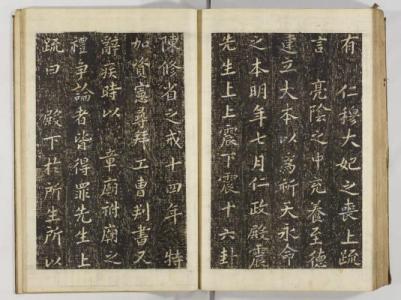 有 仁穆大妃之喪上疏
言 亮陰之中充養至德
建立大本以爲祈天永命
之本明年七月仁政殿震
先生上上震下震十六卦
陳修省之戒十四年特
加資憲尋拜工曹判書又
辭疾時以 章廟祔廟之
禮爭論者皆得罪先生上
疏曰 殿下於所生所以